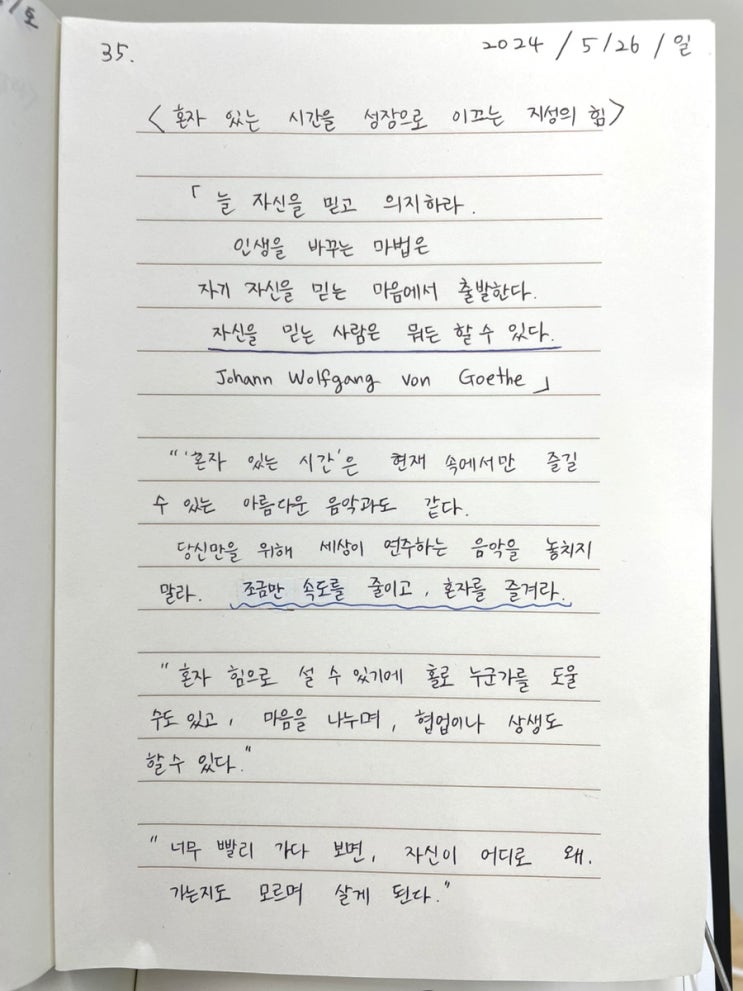 35.
2024 / 5 / 26 / 일
< 혼자 있는 시간을 성장으로 이끄는 지성의 힘 >
「 늘 자신을 믿고 의지하라.
인생을 바꾸는 마법은
자기 자신을 믿는 마음에서 출발한다.
자신을 믿는 사람은 뭐든 할 수 있다.
Johann Wolfgang von Goethe 」
" '혼자 있는 시간'은 현재 속에서만 즐길
수 있는 아름다운 음악과도 같다.
당신만을 위해 세상이 연주하는 음악을 놓치지
말라. 조금만 속도를 줄이고, 혼자를 즐겨라.
" 혼자 힘으로 설 수 있기에 홀로 누군가를 도울
수도 있고, 마음을 나누며, 협업이나 상생도
할 수 있다."
" 너무 빨리 가다 보면, 자신이 어디로 왜.
가는지도 모르며 살게 된다."